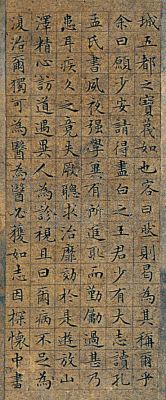 城五都之寶蔑如也客曰然則曷為其稱爾乎
余曰願少安請得盡白之王君少有大志讀孔
孟氏書夙夜强學兾有所進耻而勤勵過甚乃
患耳疾久之竟失厥聰求治靡効於是遊放山
澤精心訪道遇異人為診視且曰爾病不足為
復治爾獨可為醫為醫必獲如志因探懷中書